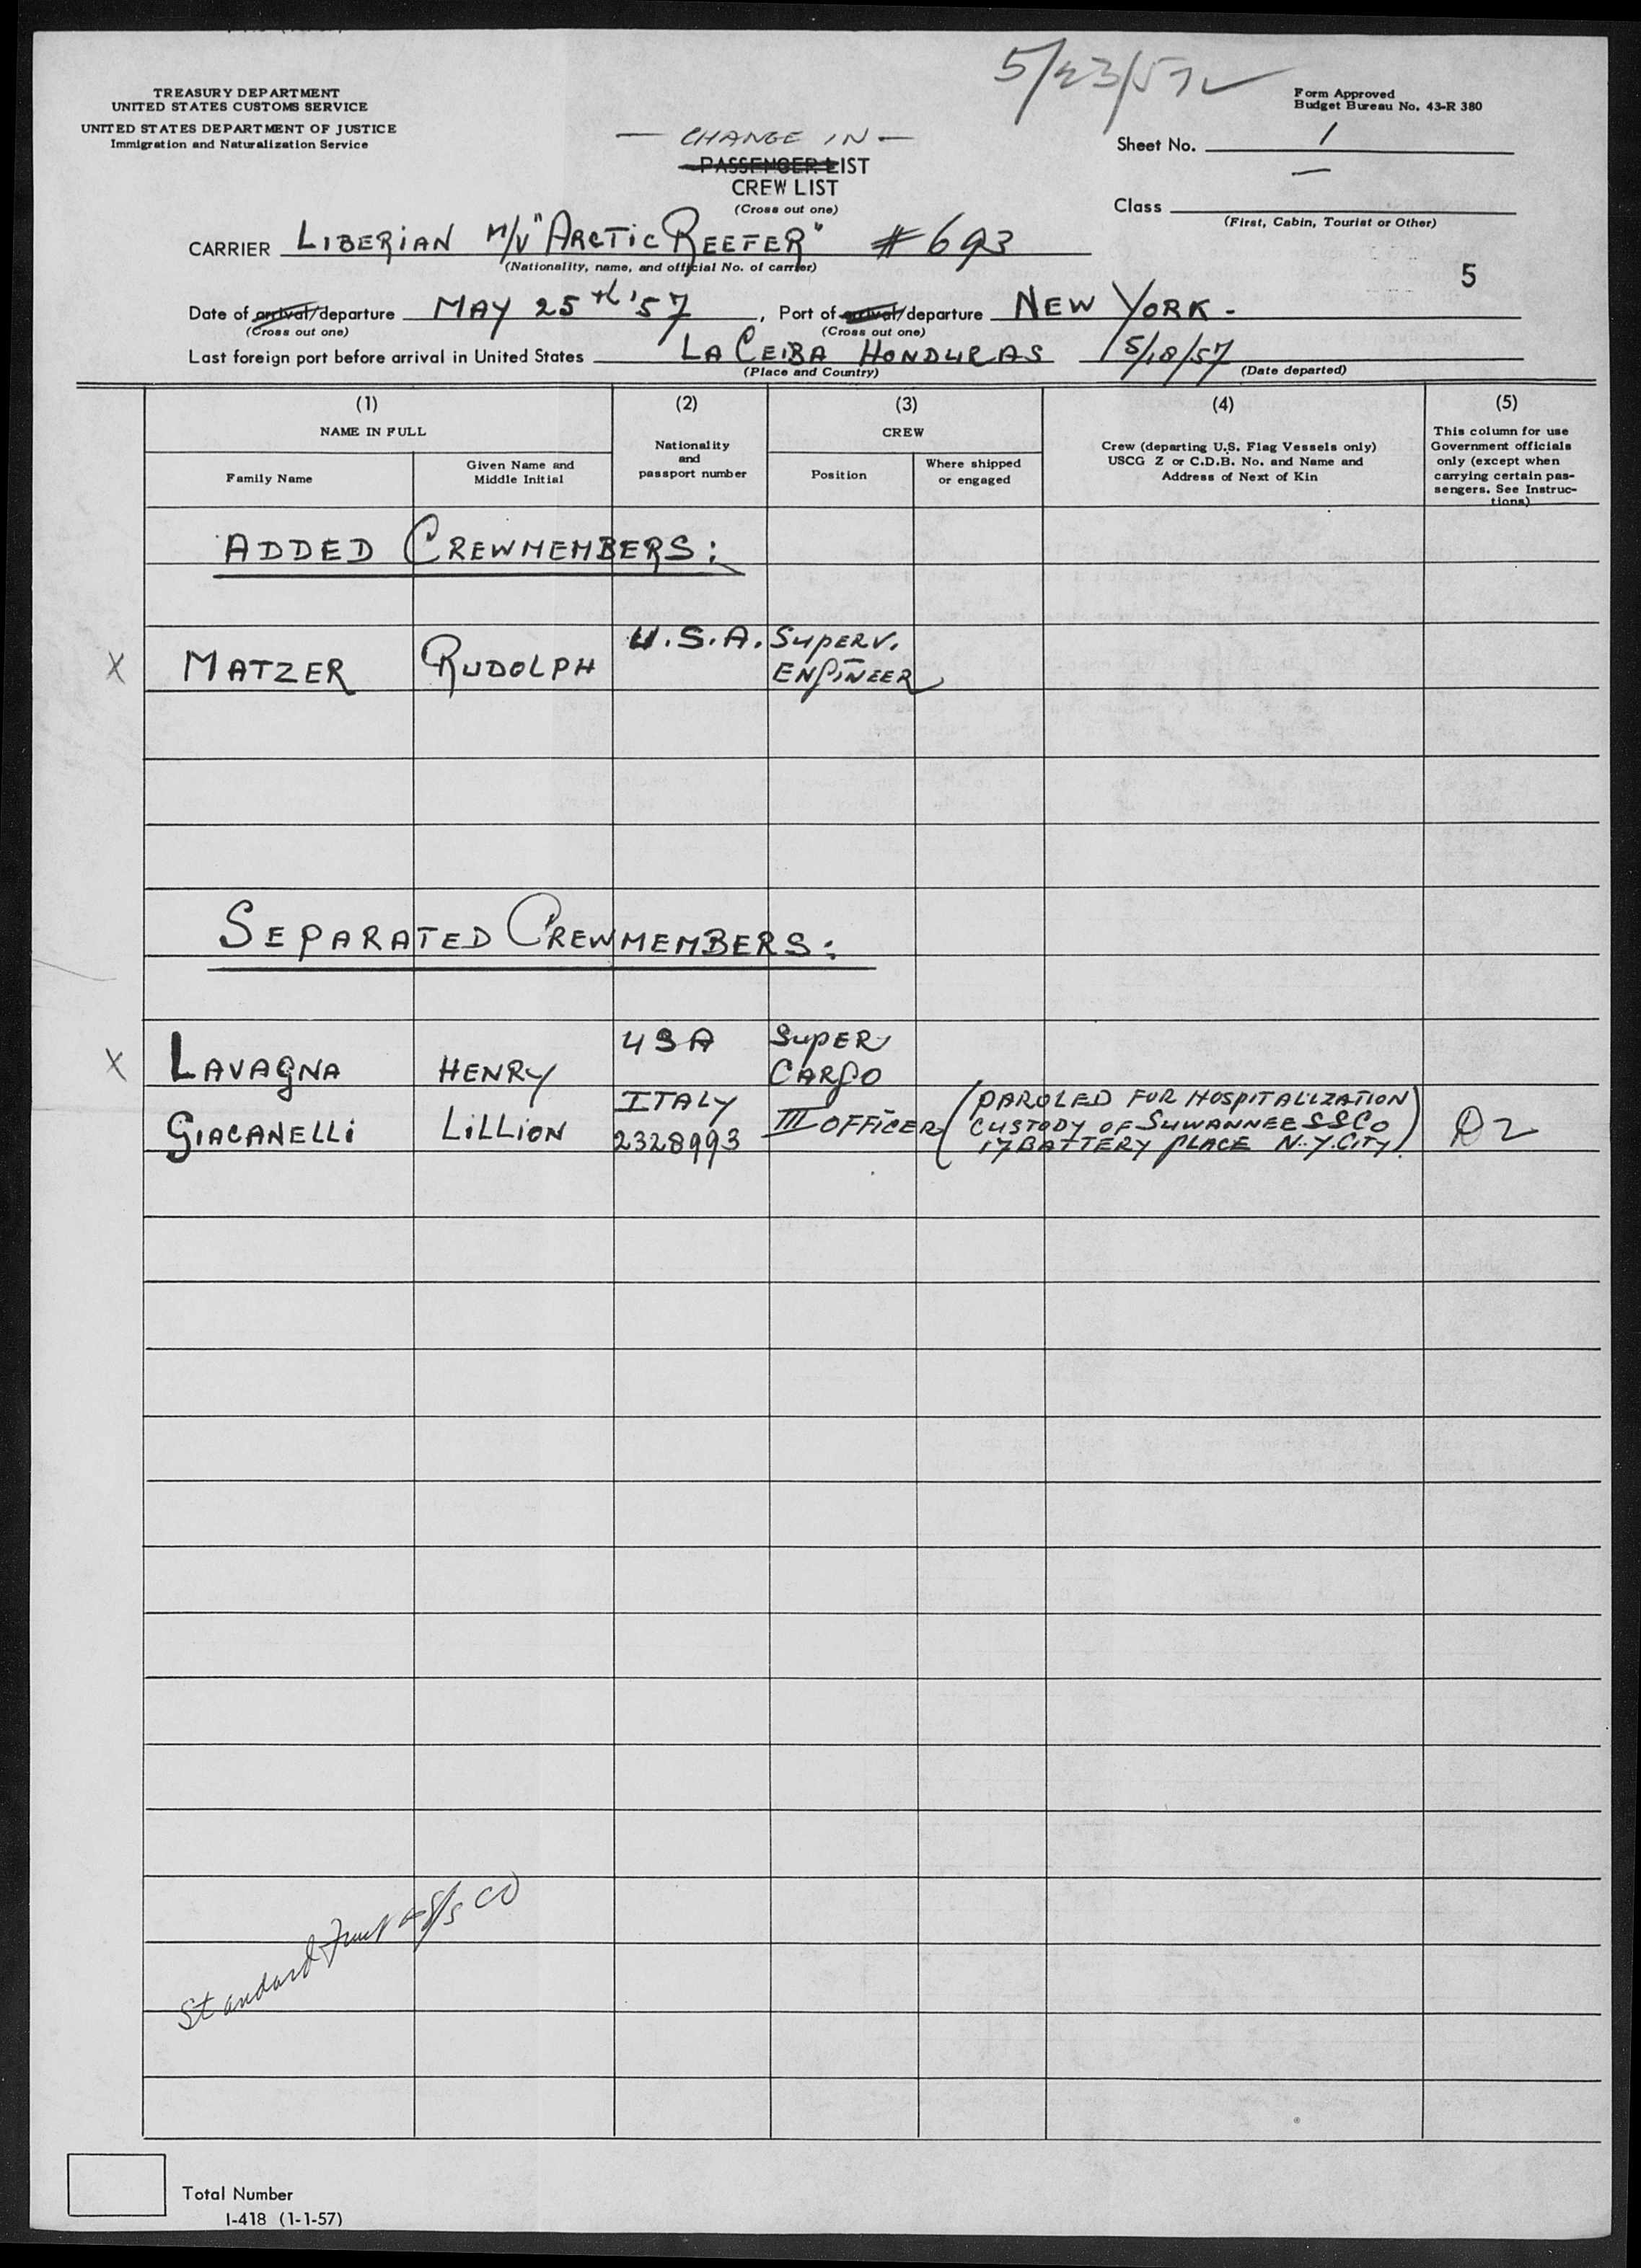 5/23/57
TREASURY DEPARTMENT
UNITED STATES CUSTOMS SERVICE
UNITED STATES DEPARTMENT OF JUSTICE
Immigration and Naturalization Service
Form Approved
Budget Bureau No. 43-R 380
— CHANGE IN —
PASSENGER LIST
CREW LIST
(Cross out one)
Sheet No. 1
Class —
(First, Cabin, Tourist or Other)
CARRIER LIBERIAN M/V "ARCTIC REEFER" #693
(Nationality, name, and official No. of carrier)
5
Date of arrival/departure MAY 25th '57, Port of arrival/departure NEW YORK.
(Cross out one) (Cross out one)
Last foreign port before arrival in United States LA CEIBA HONDURAS 5/18/57
(Place and Country) (Date departed)
(1) (2) (3) (4) (5)
NAME IN FULL
Family Name
Given Name and
Middle Initial
Nationality
and
passport number
CREW
Position
Where shipped
or engaged
Crew (departing U.S. Flag Vessels only)
USCG Z or C.D.B. No. and Name and
Address of Next of Kin
This column for use
Government officials
only (except when
carrying certain pas-
sengers. See Instruc-
tions)
ADDED CREWMEMBERS:
X MATZER RUDOLPH U.S.A. SUPERV.
ENGINEER
SEPARATED CREWMEMBERS:
X LAVAGNA HENRY USA SUPER
CARGO
GIACANELLI LILLION ITALY
2328993
III OFFICER
(PAROLED FOR HOSPITALIZATION
CUSTODY OF SUWANNEE SS CO
17 BATTERY PLACE N.Y.CITY)
D2
Standard Fruit & S/S CO
Total Number
I-418 (1-1-57)